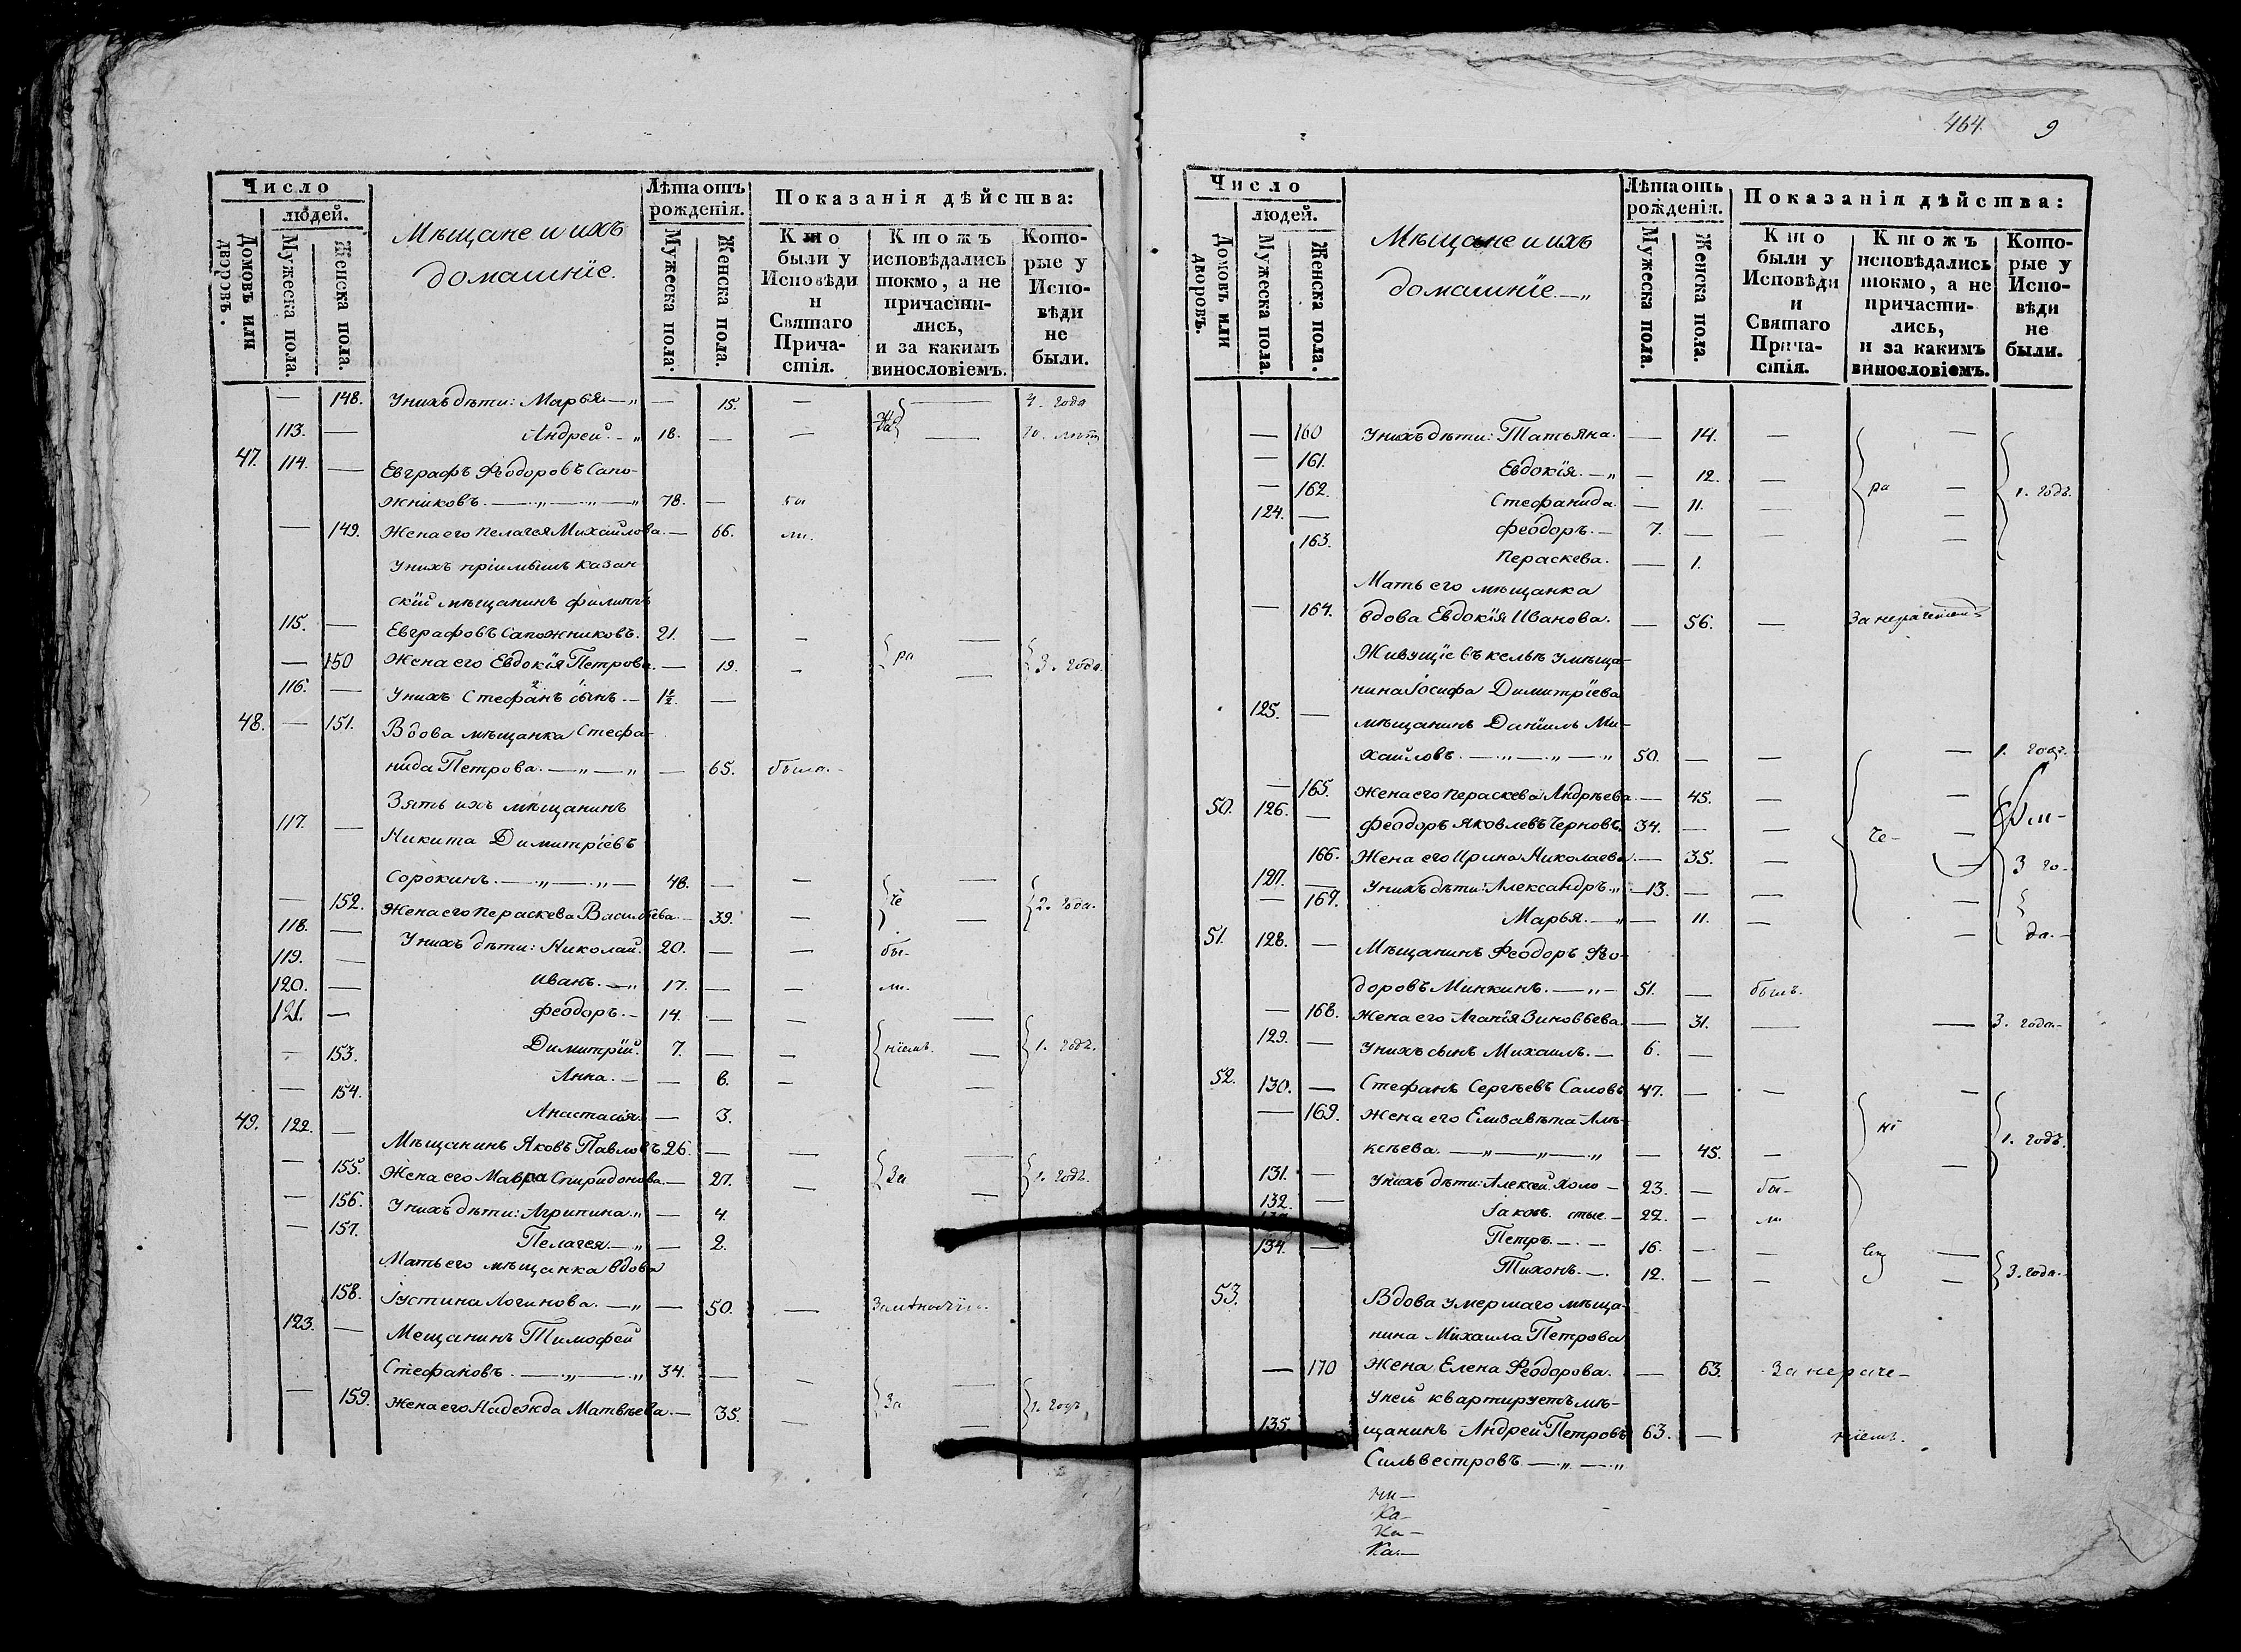 464. 9
Число
людей.
Домовъ или дворовъ.
Мужеска пола.
Женска пола.
Мѣщане и ихъ
домашнїе.
Лѣта отъ
рожденія.
Мужеска пола.
Женска пола.
Показанія дѣйства:
Кто были у Исповѣди и Святаго Прича-стія.
Ктожъ исповѣдались токмо, а не причасти-лись, и за какимъ винословіемъ.
Кото-рые у Испо-вѣди не были.
— 148. Унихъ дѣти: Марья. — „ — 15. — — 4. года
113. — Андрей. — „ 18. — — —
47. 114. — Евграфъ Ѳеодоровъ Сапо-
жниковъ. — „ — „ — „ 78. — бы
— 149. Жена его Пелагея Михайлова. — 66. ли.
Унихъ прїимышъ казан
скїй мѣщанинъ Филиппъ
115. — Евграфовъ Сапожниковъ. 21. — — —
— 150 Жена его Евдокїя Петрова. — 19. — ра — 3. года.
116. — Унихъ Стефанъ сынъ. — 1½. —
48. — 151. Вдова мѣщанка Стефа-
нида Петрова. — „ — „ — 65. была. —
Зять ихъ мѣщанинъ
117. — Никита Димитрїевъ
Сорокинъ. — „ — „ — 48. — — —
— 152. Жена его Пераскева Васильева. — 39. — че — 2. года.
118. — Унихъ дѣти: Николай. 20. — — бы-
119. — Иванъ. — „ 17. — — ли.
120. — Феодоръ. — 14. — — —
121. — Димитрїй. 7. — — нїемъ. — 1. годъ.
— 153. Анна. — — 6. — —
— 154. Анастасїя. — 3.
49. 122. — Мѣщанинъ Яковъ Павловъ 26. — — —
— 155. Жена его Мавра Спиридонова. — 27. — За — 1. годъ.
— 156. Унихъ дѣти: Агрипина. „ — 4.
— 157. Пелагея. — „ — 2.
Мать его мѣщанка вдова
158. Іустина Логинова. — „ — 50. —
123. — Мещанинъ Тимофей
Стефановъ. — „ — „ 34. — — —
— 159. Жена его Надежда Матвѣева. — 35. — За — 1. годъ
Число
людей.
Домовъ или дворовъ.
Мужеска пола.
Женска пола.
Мѣщане и ихъ
домашнїе. — „
Лѣта отъ
рожденія.
Мужеска пола.
Женска пола.
Показанія дѣйства:
Кто были у Исповѣди и Святаго Прича-стія.
Ктожъ исповѣдались токмо, а не причасти-лись, и за какимъ винословіемъ.
Кото-рые у Испо-вѣди не были.
— 160 Унихъ дѣти: Татьяна. — 14. — —
— 161. Евдокїя. — „ — 12. —
— 162. Стефанида. — 11. ра — 1. годъ.
124. — Феодоръ. — 7. — — —
163. Пераскева. — 1. —
Мать его мѣщанка
— 164. вдова Евдокїя Иванова. — 56. —
Живущїе въ кельѣ умѣща-
нина Іосифа Димитрїева
125. — мѣщанинъ Данїилъ Ми-
хайловъ. — „ — „ — „ 50. — — — 1. годъ.
— 165. Жена его Пераскева Андрѣева. — 45. — —
50. 126. — Феодоръ Яковлевъ Черновъ. 34. — — че- —
166. Жена его Ирина Николаева. — 35. — — 3 го-
127. — Унихъ дѣти: Александръ. „ — 13. — — —
— 167. Марья. — „ — 11. — — да. —
51. 128. — Мѣщанинъ Ѳеодоръ Ѳео-
доровъ Минкинъ. — „ — 51. — былъ.
— 168. Жена его Агапїя Зиновьева. — 31. — — 3. года. —
129. — Унихъ сынъ Михаилъ. — 6. —
52. 130. — Стефанъ Сергѣевъ Саловъ 47. — — —
— 169. Жена его Елизавѣта Алѣ-
ксѣева. — „ — „ — „ — 45. — нї — 1. годъ.
131. — Унихъ дѣти: Алексѣй. Холо- 23. — бы-
132. — Іаковъ. стые. — 22. — ли
Петръ. — . — 16. — — —
134. — Тихонъ. — . 12. — — — 3. года. —
53. Вдова умершаго мѣща-
нина Михаила Петрова
— 170 Жена Елена Ѳеодорова. — 63. За нераче-
Уней квартируетъ мѣ-
135. щанинъ Андрей Петровъ 63. — нїемъ.
Сильвестровъ — „ — „
Ка-
Ка-
Ка. —